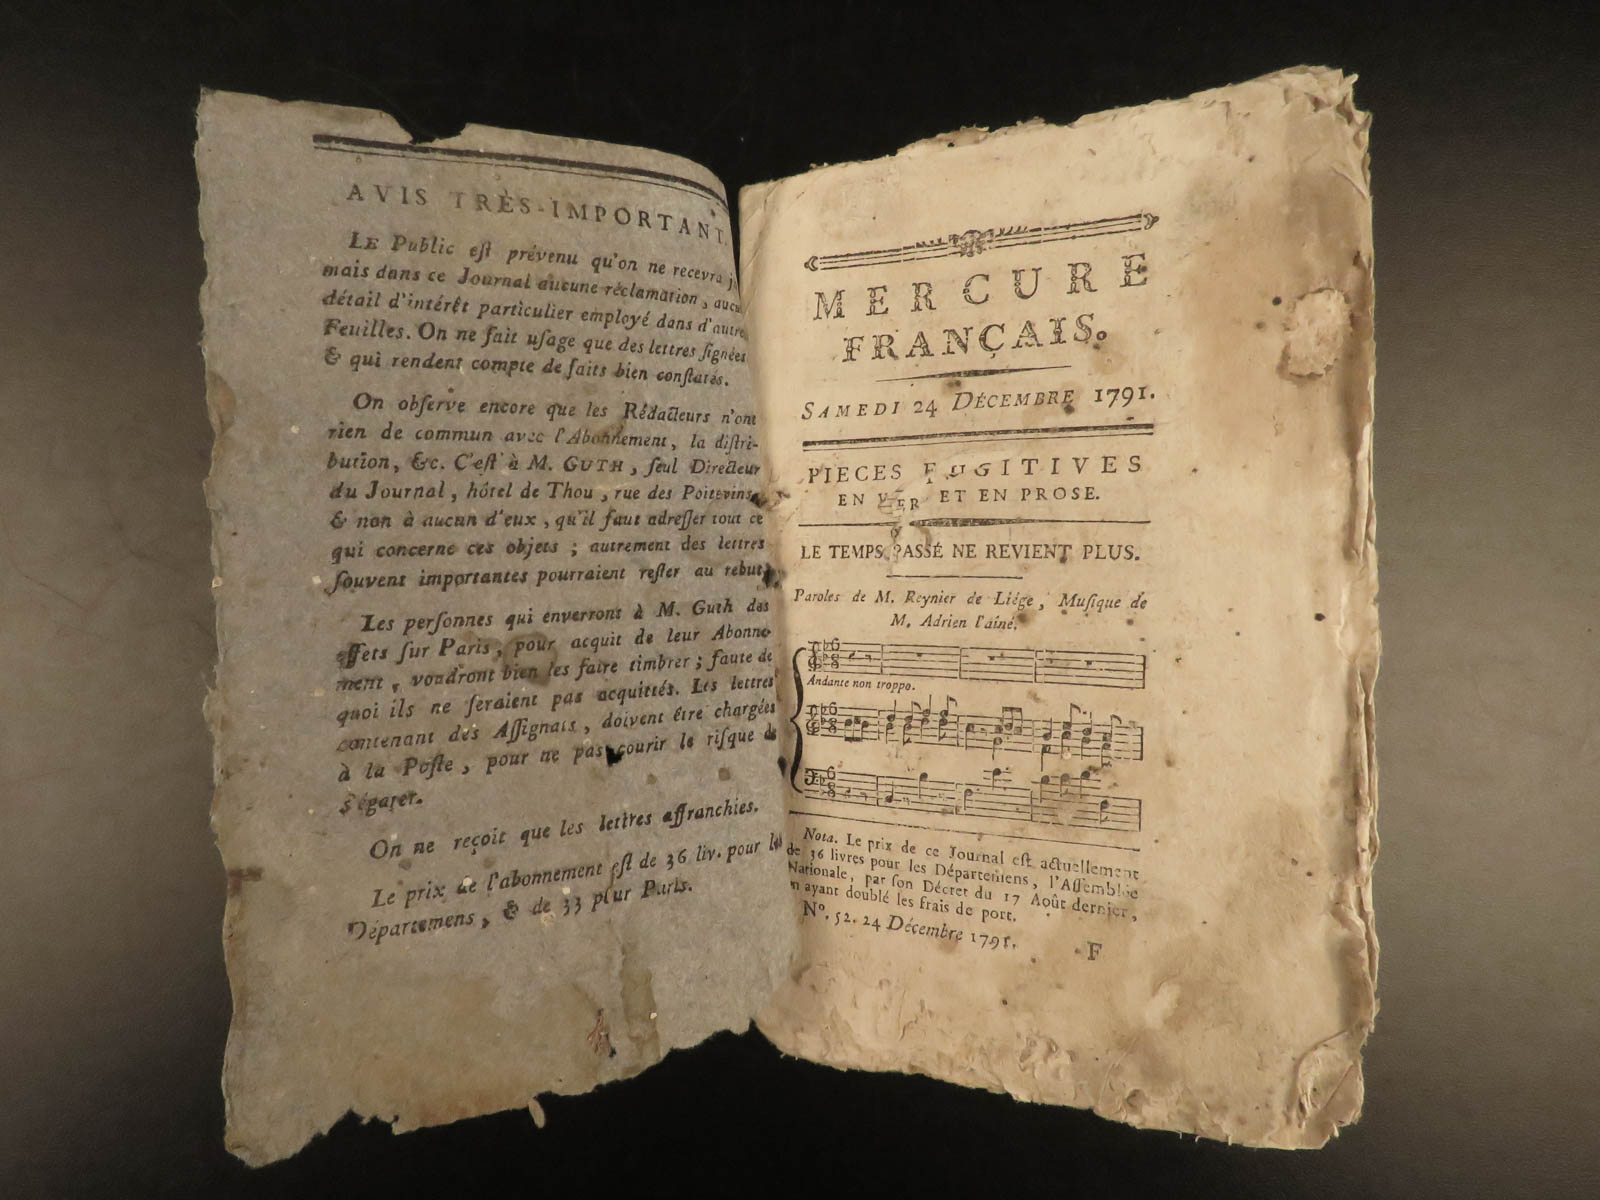 AVIS TRÈS-IMPORTANT.
LE Public eſt prévenu qu'on ne recevra ja
mais dans ce Journal aucune réclamation, aucu
détail d'intérêt particulier employé dans d'autre
Feuilles. On ne fait uſage que des lettres ſignées
& qui rendent compte de faits bien conſtatés.
On obſerve encore que les Rédacteurs n'ont
rien de commun avec l'Abonnement, la diſtri-
bution, &c. C'eſt à M. GUTH, ſeul Directeur
du Journal, hôtel de Thou, rue des Poitevins,
& non à aucun d'eux, qu'il faut adreſſer tout ce
qui concerne ces objets; autrement des lettres
ſouvent importantes pourraient reſter au rebut.
Les perſonnes qui enverrons à M. Guth des
effets ſur Paris, pour acquit de leur Abonne-
ment, voudront bien les faire timbrer; faute de
quoi ils ne ſeraient pas acquittés. Les lettres
contenant des Aſſignats, doivent être chargées
à la Poſte, pour ne pas courir le riſque de
s'égarer.
On ne reçoit que les lettres affranchies.
Le prix de l'abonnement eſt de 36 liv. pour les
Départemens, & de 33 pour Paris.
MERCURE
FRANÇAIS.
SAMEDI 24 DÉCEMBRE 1791.
PIECES FUGITIVES
EN VER ET EN PROSE.
LE TEMPS PASSÉ NE REVIENT PLUS.
Paroles de M. Reynier de Liége, Muſique de
M. Adrien l'aîné.
Andante non troppo.
Nota. Le prix de ce Journal eſt actuellement
de 36 livres pour les Départemens, l'Aſſemblée
Nationale, par ſon Décret du 17 Août dernier,
n ayant doublé les frais de port.
N°. 52. 24 Décembre 1791. F